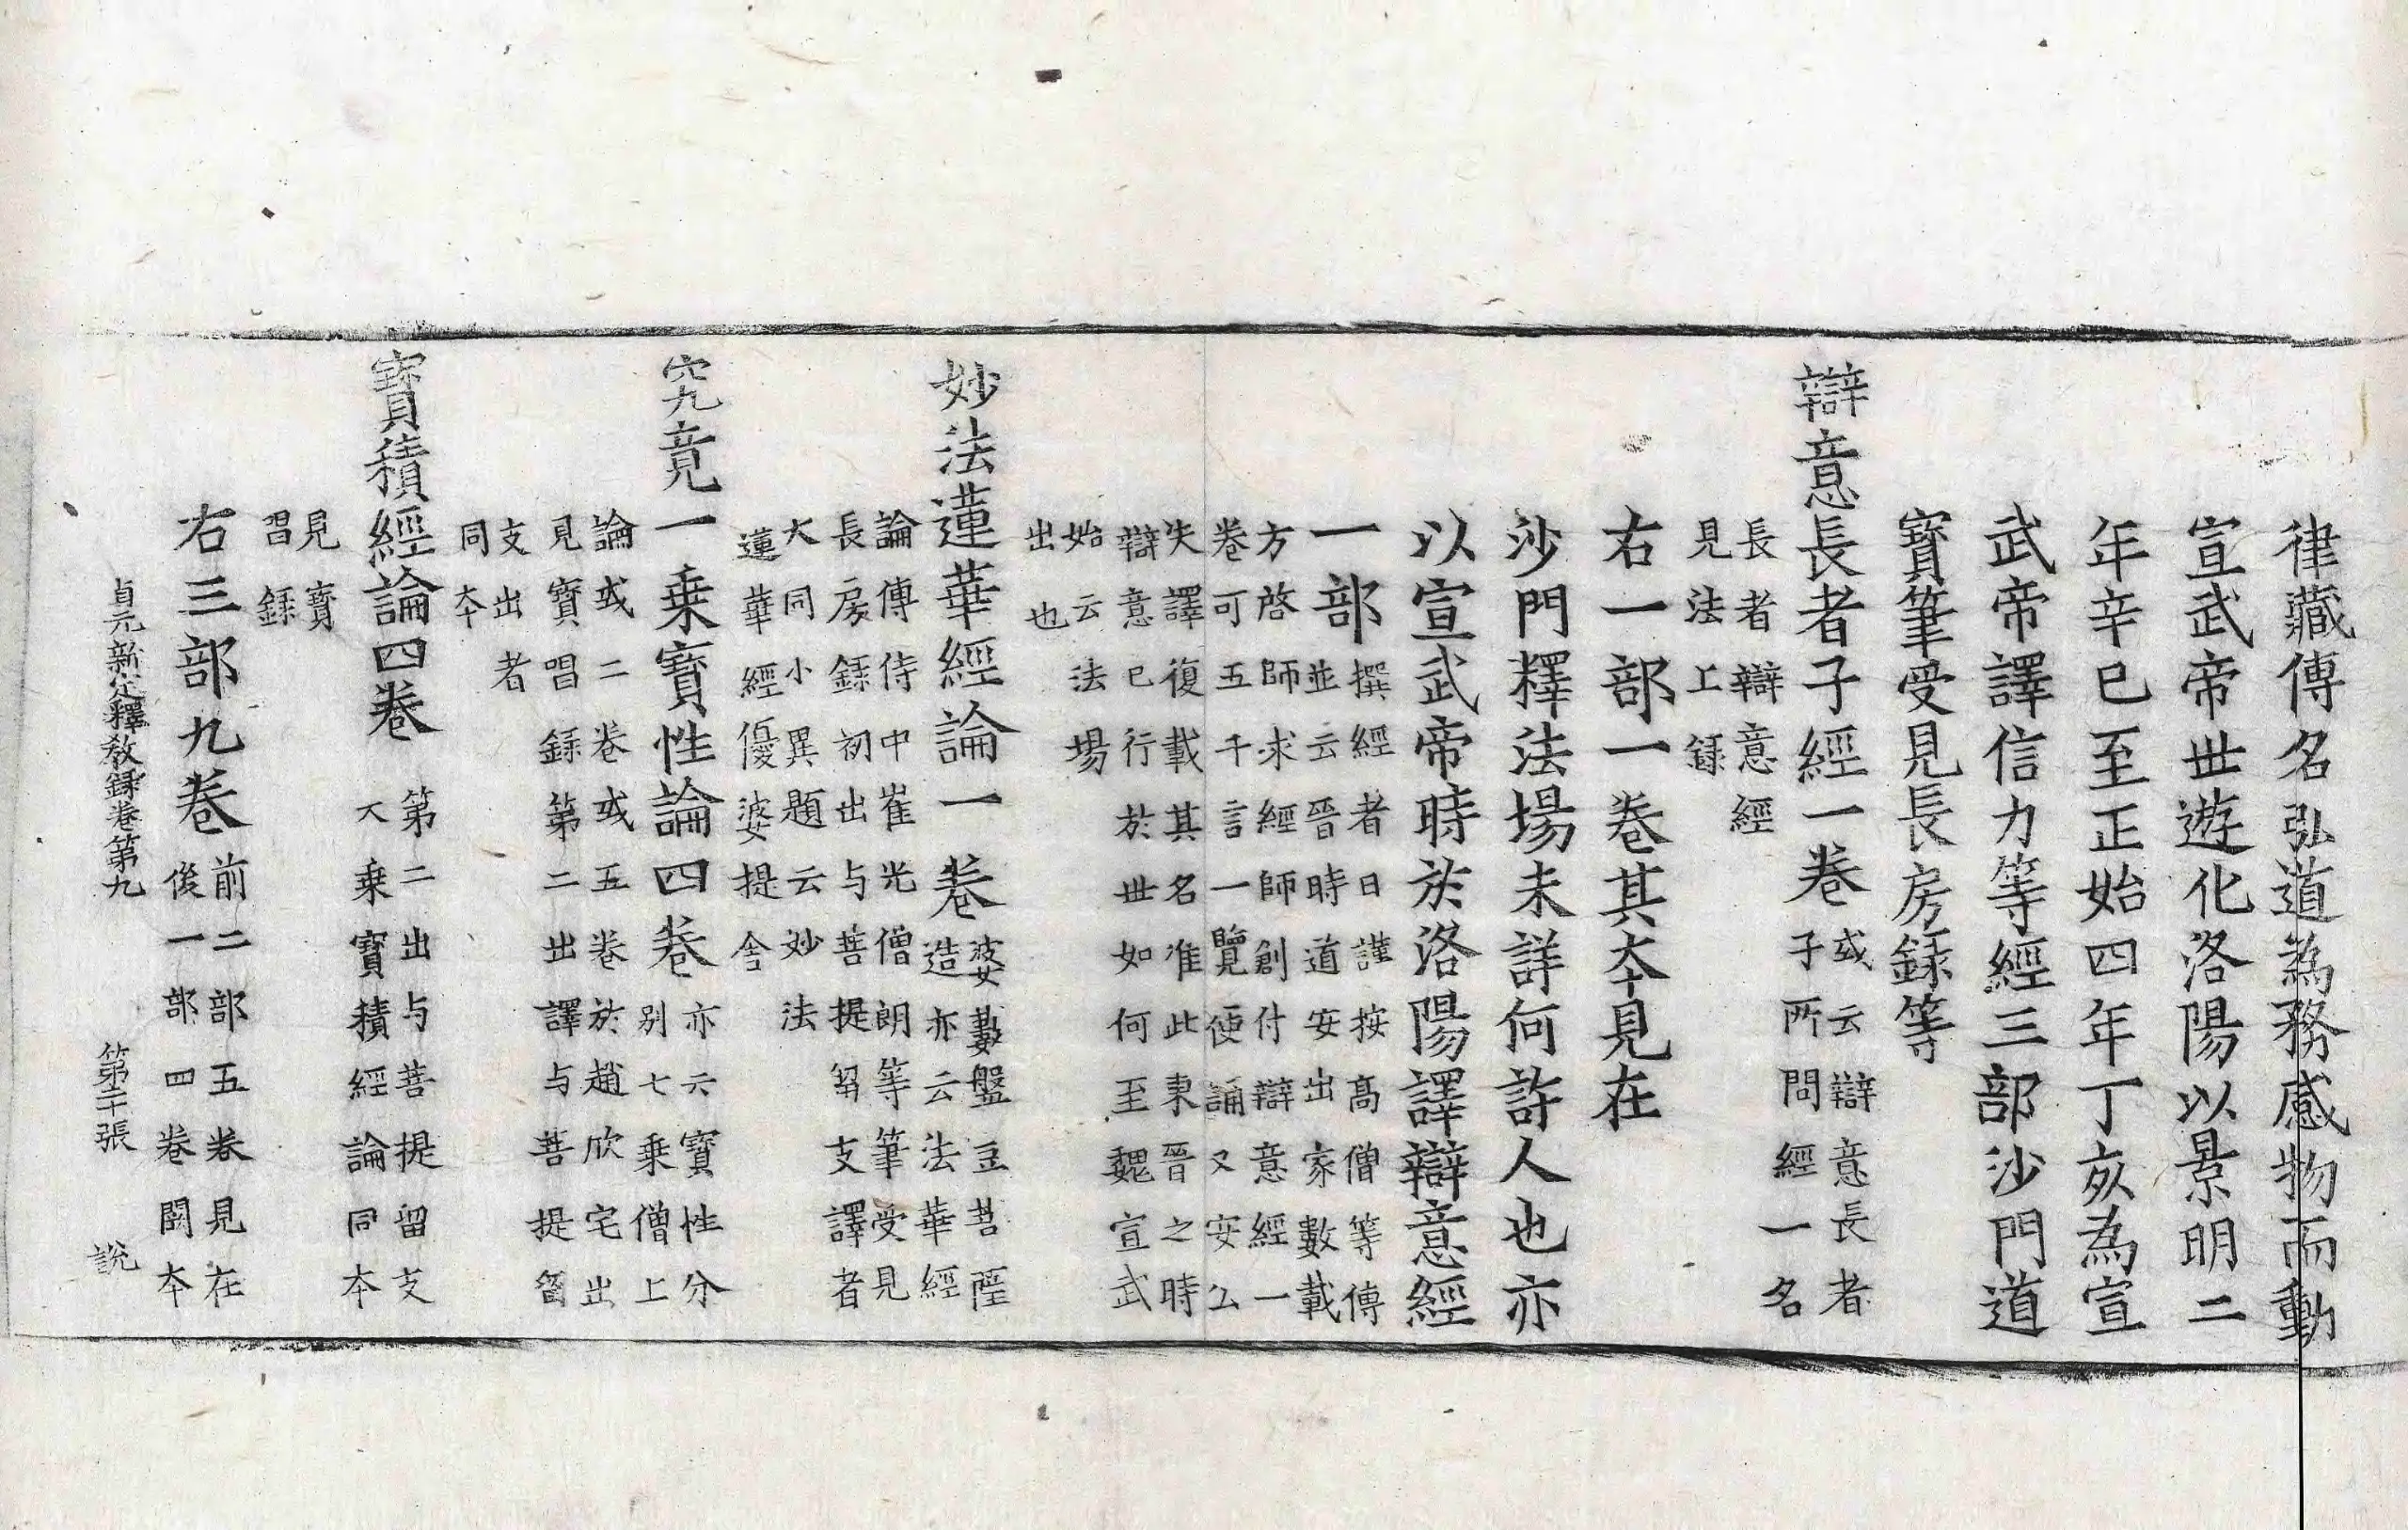 律藏傳名弘道為務感物而動
宣武帝世遊化洛陽以景明二
年辛巳至正始四年丁亥為宣
武帝譯信力等經三部沙門道
寶筆受見長房錄等
辯意長者子經一卷
或云辯意長者
子所問經一名
長者辯意經
見法上錄
右一部一卷其夲見在
沙門釋法場未詳何許人也亦
以宣武帝時於洛陽譯辯意經
一部
撰經者曰謹按高僧等傳
並云晉時道安出家數載
方啓師求經師創付辯意經一
卷可五千言一覽便誦又安公
失譯復載其名准此東晉之時
辯意已行於世如何至魏宣武
始云法場
出也
妙法蓮華經論一卷
婆藪盤豆菩薩
造亦云法華經
論傳侍中崔光僧朗等筆受見
長房錄初出与菩提留支譯者
大同小異題云妙法
蓮華經優婆提舍
究竟一乗寶性論四卷
亦云寶性分
別七乗僧上
論或二卷或五卷於趙欣宅出
見寶唱錄第二出譯与菩提留
支出者
同夲
寶積經論四卷
第二出与菩提留支
大乗寶積經論同夲
見寶
唱錄
右三部九卷
前二部五卷見在
後一部四卷闕夲
貞元新定釋教錄卷第九 第二十張 說